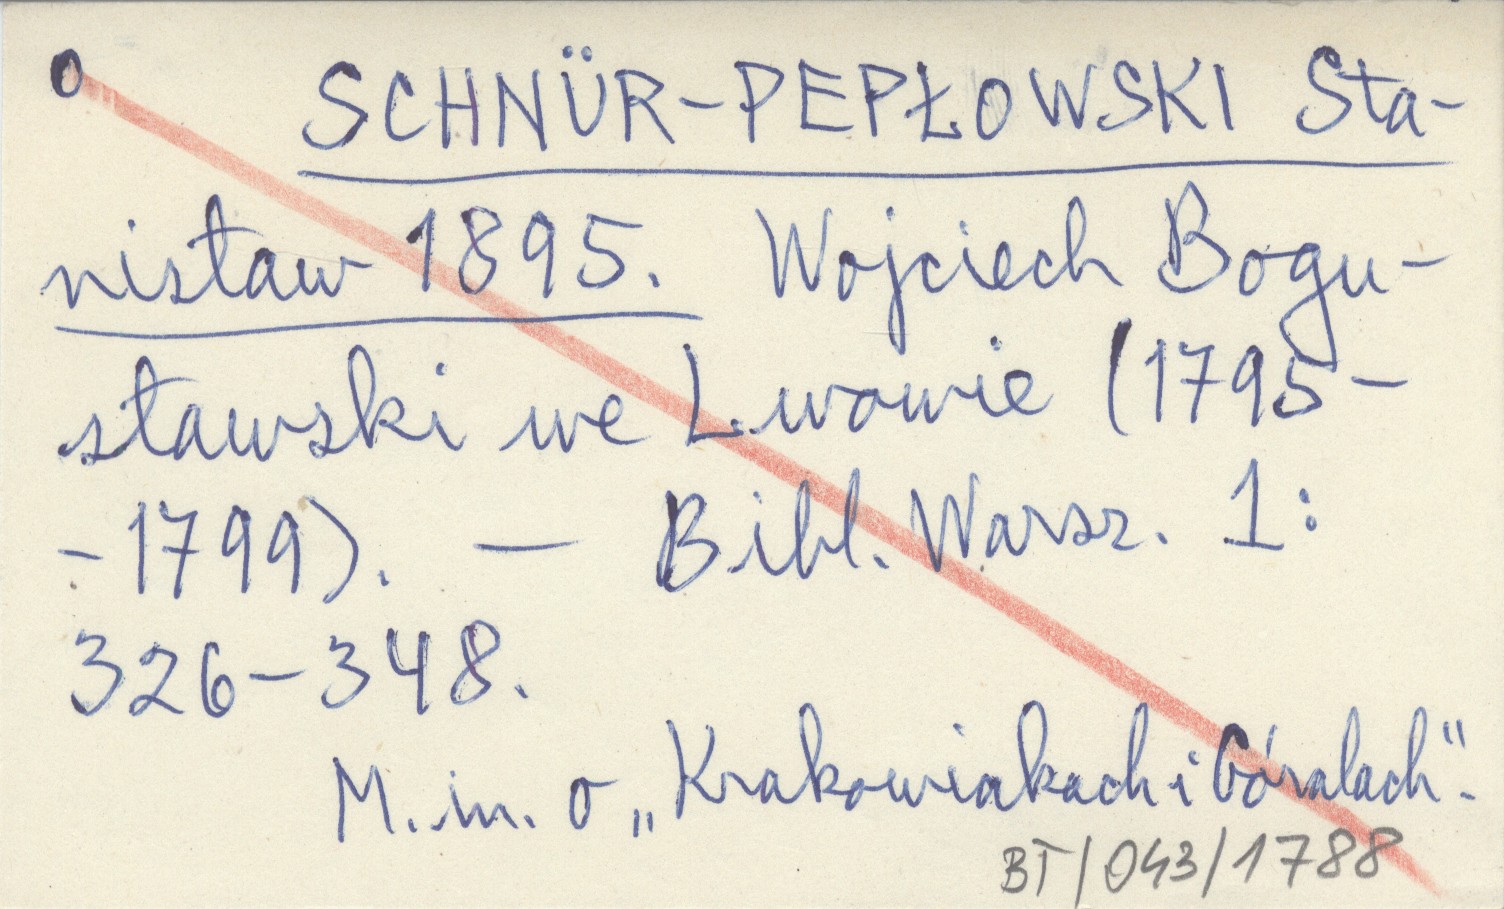 O SCHNÜR-PEPŁOWSKI Sta-
nisław 1895. Wojciech Bogu-
sławski we Lwowie (1795-
-1799). — Bibl. Warsz. 1:
326-348.
M.in. o „Krakowiakach i Góralach".
BT/043/1788